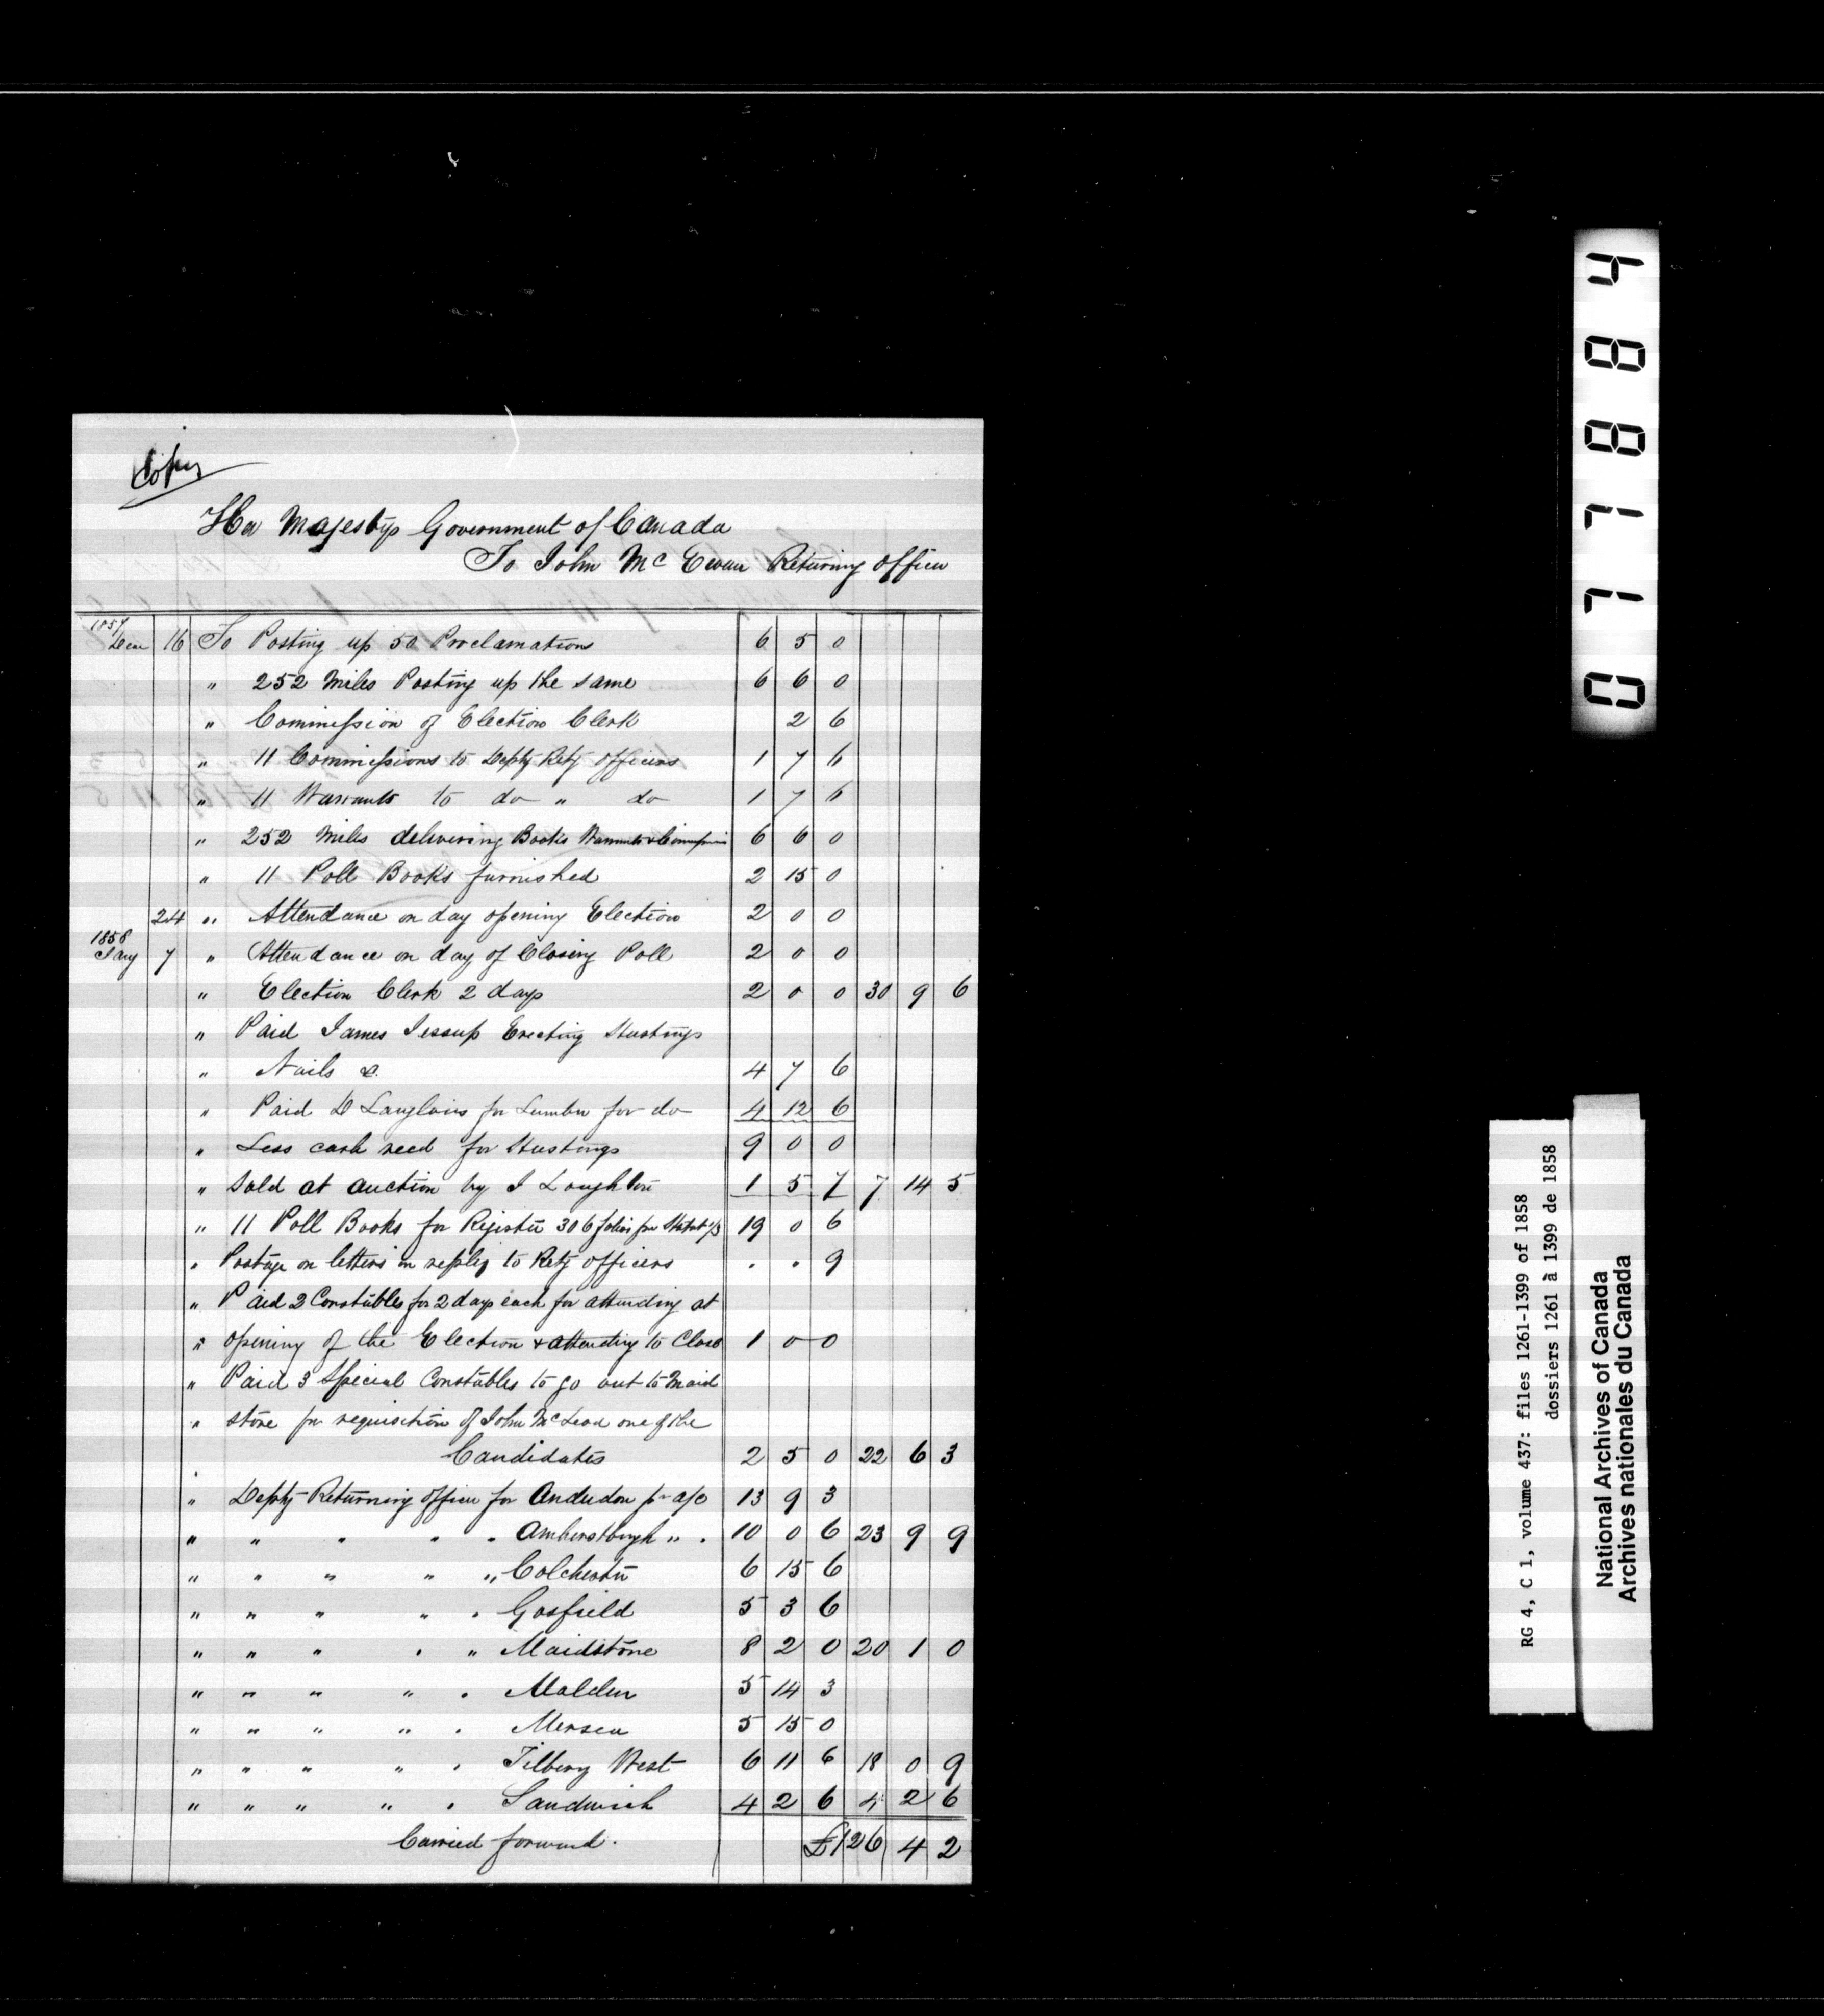 Copy
Her Majestys Government of Canada
To John Mc Ewan Returning Officer
1857
Decr 16 To Posting up 50 Proclamations 6 5 0
" 252 Miles Posting up the same 6 6 0
" Commission of Election Clerk 2 6
" 11 Commissions to Depty Retg Officers 1 7 6
" 11 Warrants to do " do 1 7 6
" 252 Miles delivering Books Warrants & Commissions 6 6 0
" 11 Poll Books furnished 2 15 0
24 " Attendance on day opening Election 2 0 0
1858
Jany 7 " Attendance on day of Closing Poll 2 0 0
" Election Clerk 2 days 2 0 0 30 9 6
" Paid James Jessup Erecting Hustings
" Nails &c. 4 7 6
" Paid D Langlois for Lumber for do 4 12 6
" Less cash recd for Hustings 9 0 0
" Sold at auction by J Loughton 1 5 7 7 14 5
" 11 Poll Books for Register 306 folios per Statut 1/3 19 0 6
" Postage on letters in reply to Retg officers . . 9
" Paid 2 Constables for 2 days each for attending at
" opening of the Election & attending to Close 1 0 0
" Paid 3 Special Constables to go out to Maid
" stone pr requisition of John McLeod one of the
Candidates 2 5 0 22 6 3
" Depty Returning Officer for Anderdon pr a/c 13 9 3
" " " " " Amherstburgh " . 10 0 6 23 9 9
" " " " " Colchester 6 15 6
" " " " " Gosfield 5 3 6
" " " " " Maidstone 8 2 0 20 1 0
" " " " " Malden 5 14 3
" " " " " Mersea 5 15 0
" " " " " Tilbury West 6 11 6 18 0 9
" " " " " Sandwich 4 2 6 4 2 6
Carried forward. £126 4 2
077884
RG 4, C 1, volume 437: files 1261-1399 of 1858
dossiers 1261 à 1399 de 1858
National Archives of Canada
Archives nationales du Canada